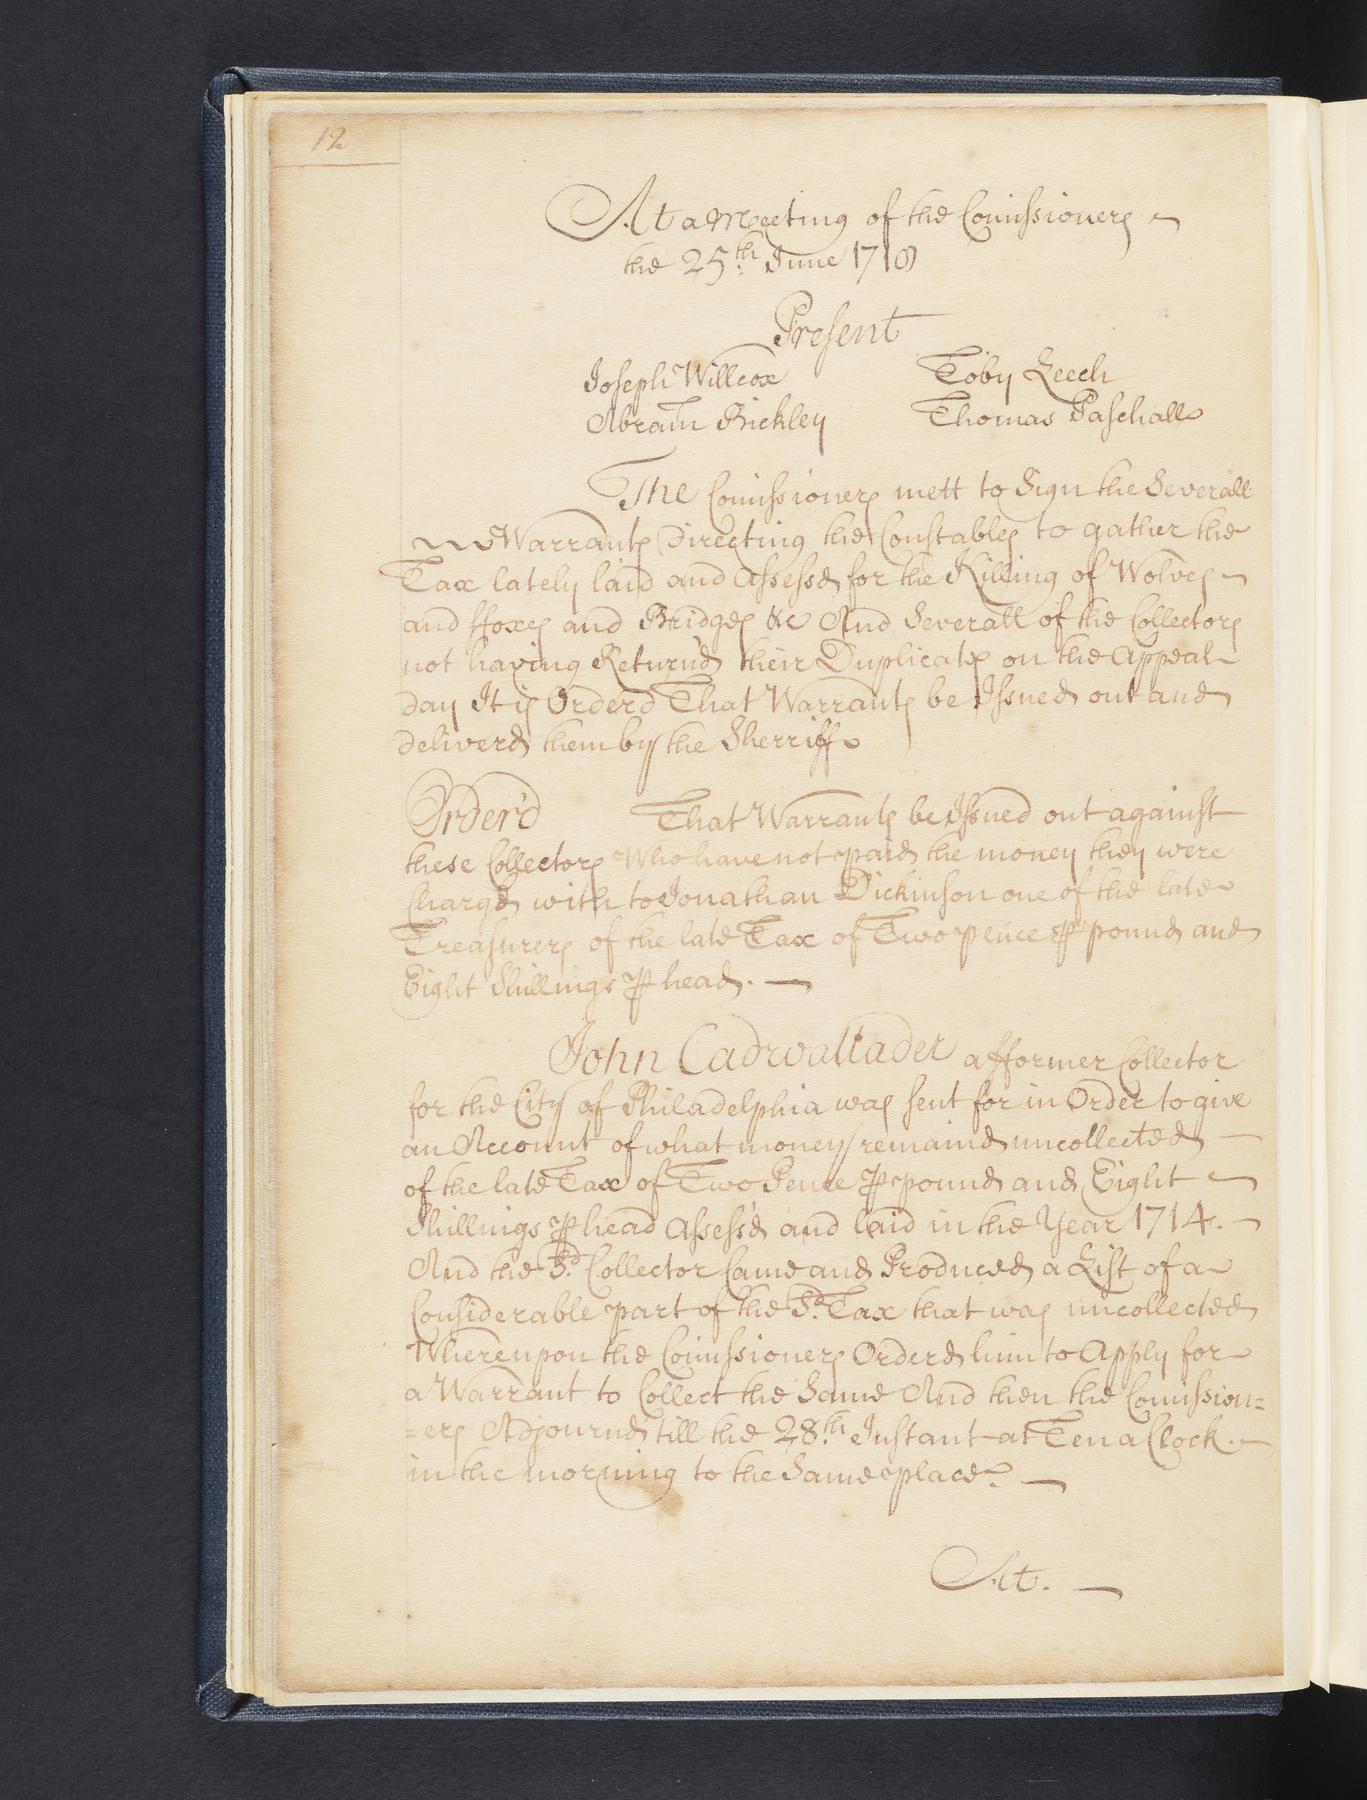 12
At a Meeting of the Comissioners
the 25th. June 1718
Present
Joseph Willcox Toby Leech
Abram Bickley Thomas Paschall
The Comissioners mett to Sign the Severall
Warrants Directing the Constables to gather the
Tax lately laid and Assessd for the Killing of Wolves
and ffoxes and Bridges &c And Severall of the Collectors
not having Return'd their Duplicates on the Appeal
day It is Orderd That Warrants be Issued out and
deliverd them by the Sherriff
Order'd That Warrants be Issued out against
these Collectors Who have not paid the money they were
Chargd with to Jonathan Dickinson one of the late
Treasurers of the late Tax of Two pence ⅌ pound and
Eight Shillings ⅌ head.
John Cadwallader a fformer Collector
for the City of Philadelphia was sent for in Order to give
an Account of what money remaind uncollected
of the late Tax of Two Pence ⅌ pound and Eight
Shillings ⅌ head Assess'd and laid in the Year 1714.
And the Sd. Collector Came and Produced a List of a
Considerable part of the Sd. Tax that was uncollected
Whereupon the Comissioners Orderd him to Apply for
a Warrant to Collect the Same And then the Comission=
=ers Adjournd till the 28th. Instant at Ten a Clock
in the morning to the Same place.
At.